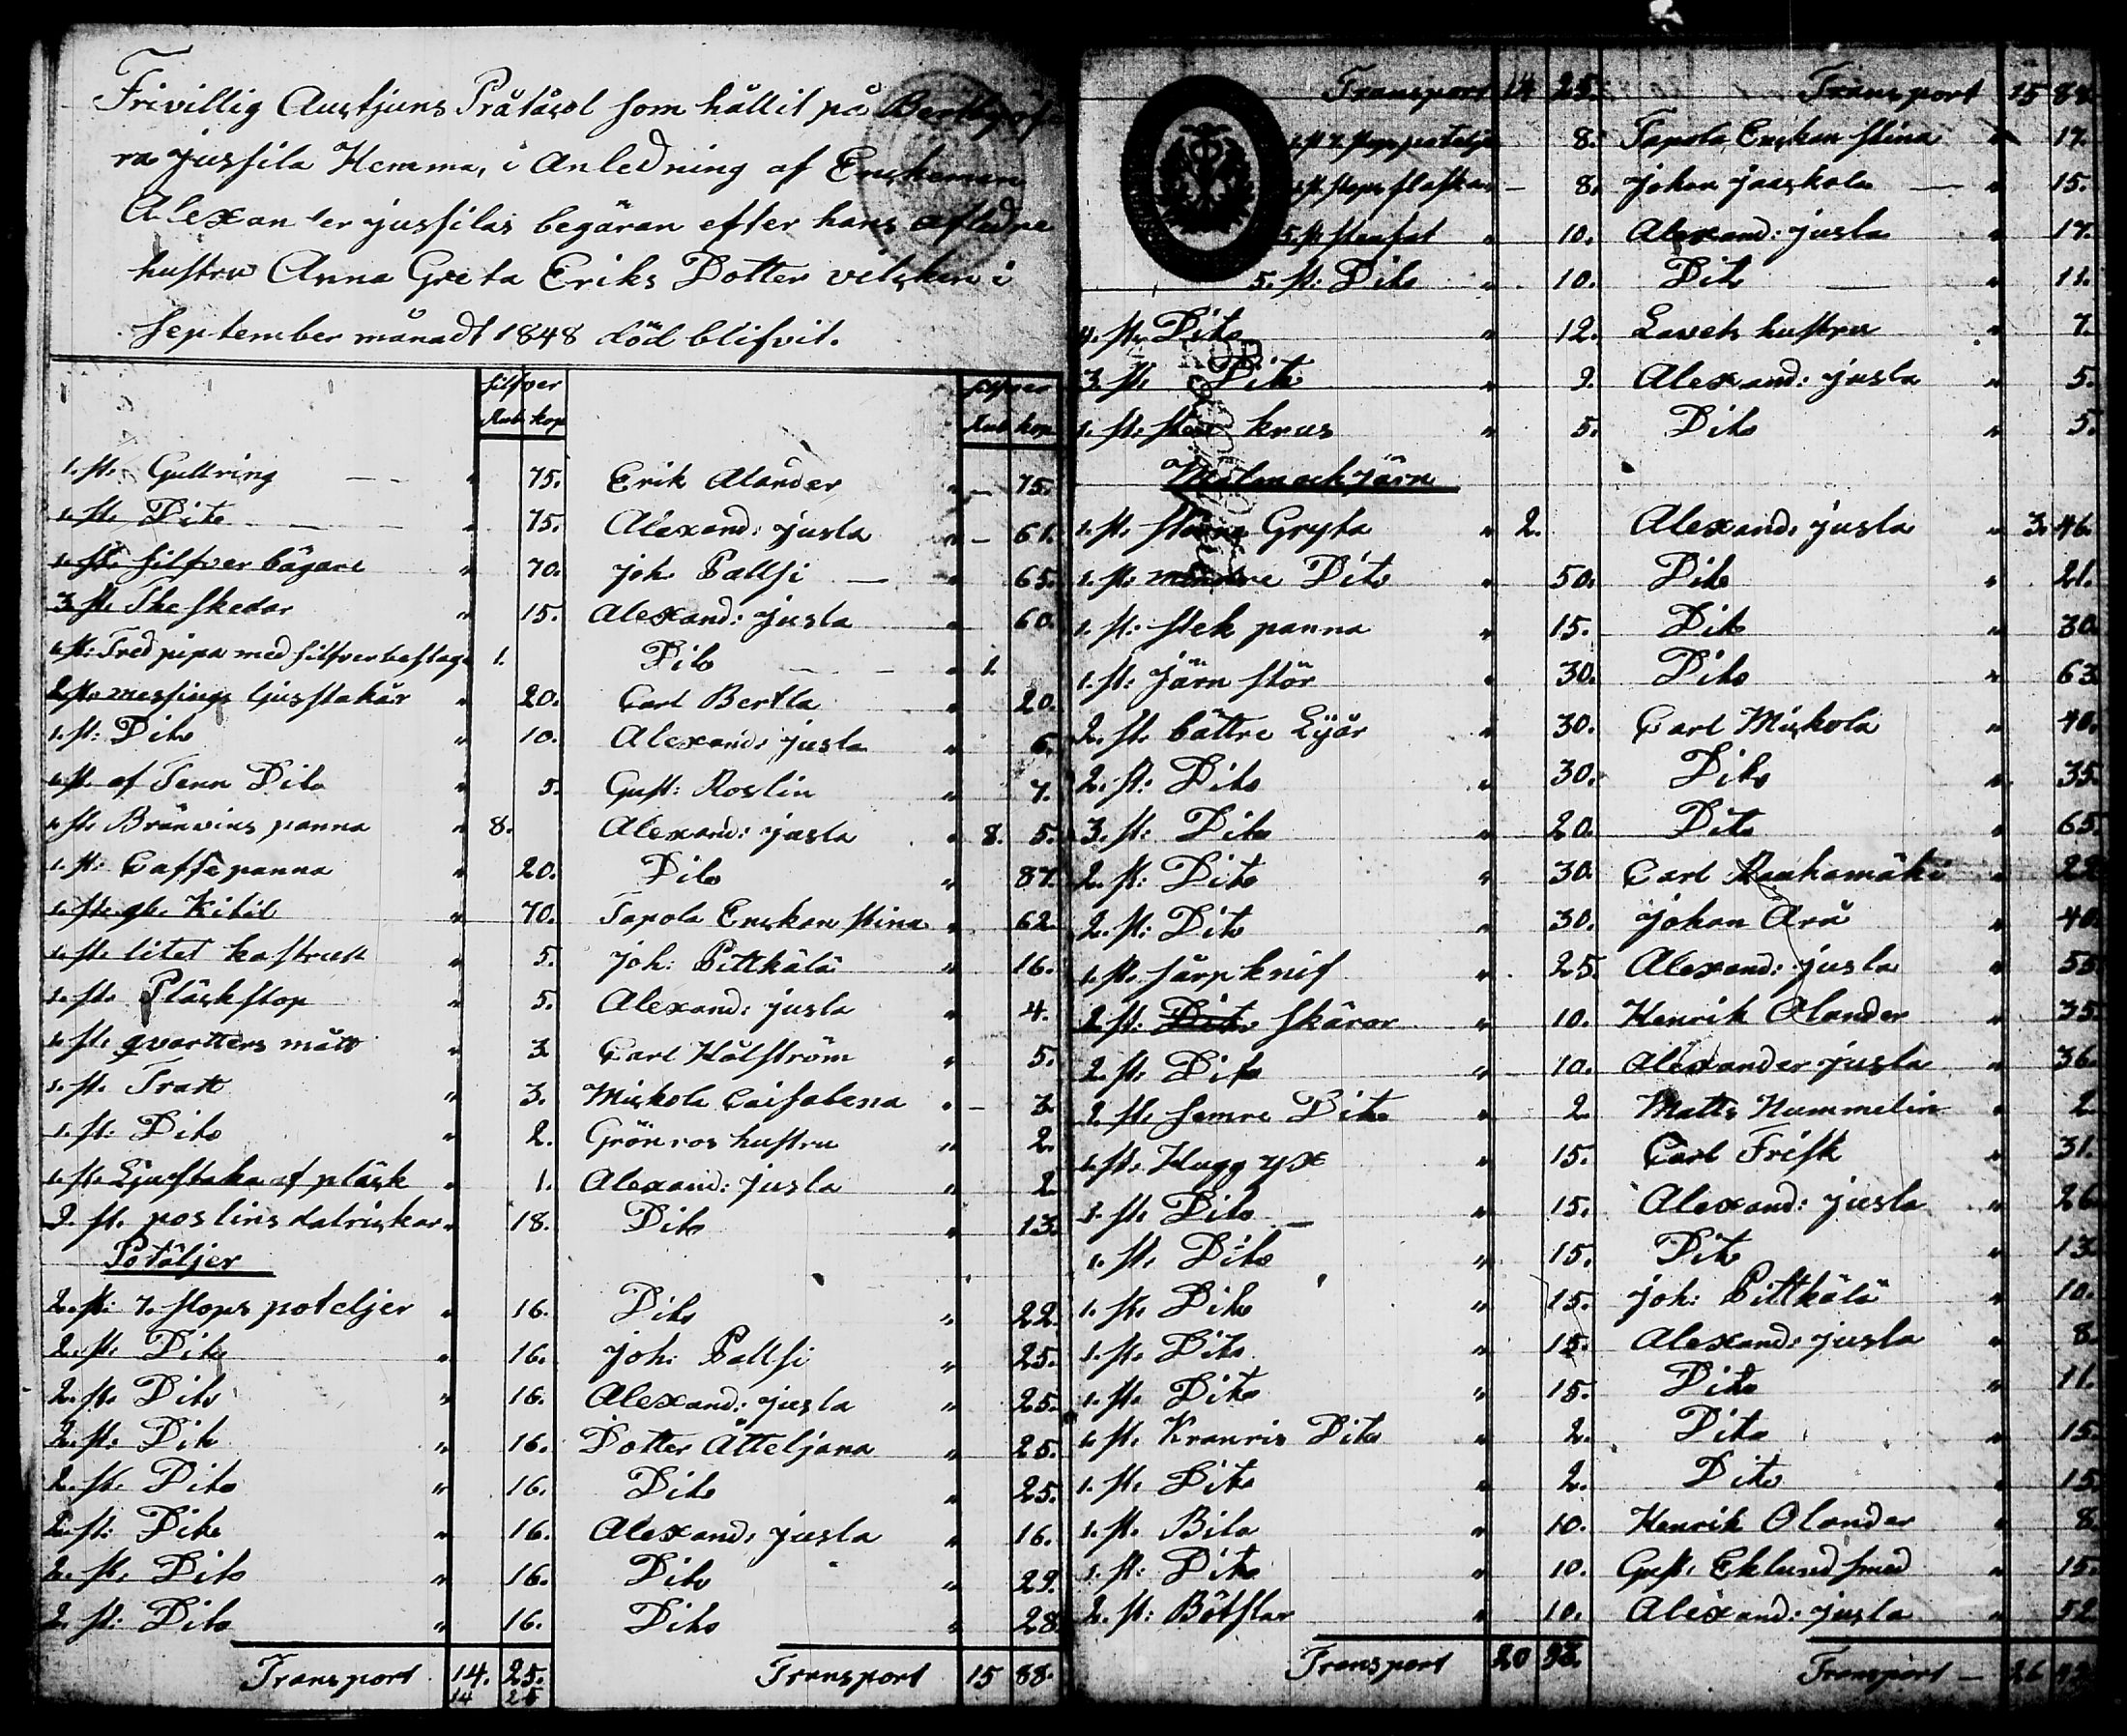 Frivillig Auctjuns Pråtåcol som hållit på
ra jussila Hemma, i Anledning af Enckeman
Alexander jussilas begäran efter hans afledne
hustru Anna Greta Eriks Dotter vilcken i
September månadt 1848 död blifvit.
silfver silfver
Rub kop Rub kop
1. st. Gullring " 75. Erik Alander " 75.
1. st. Dito " 75. Alexand: jusla " 61.
1. st. silfver bägare " 70. Joh. Pallsi " 65.
3 st. The skedar " 15. Alexand: jusla " 60.
1. st. Tred pipa med silfverbeslag 1. Dito " 1.
2. st. messings ljusstakar " 20. Carl Bertla " 20.
1. st: Dito " 10. Alexand: jusla " 6.
1. st. af Tenn Dito " 5. Gust: Roslin " 7.
1. st. Bränvins panna " 8. Alexand: jusla " 8. 5.
1. st: Caffe panna " 20. Dito " 87.
1. st. gl. Kitil " 70. Tapola Enckan Stina " 62.
1. st. litet kastrull " 5. Joh: Pittkälä " 16.
1. st. Pläckstop " 5. Alexand: jusla " 4.
1. st. qvartters mått " 3 Carl Hålström " 5.
1. st. Tratt " 3. Mickola Caisalena " 3
1. st: Dito " 2. Grönros hustru " 2.
1. st. Ljustaka af pläck " 1. Alexand: jusla " 2
2. st. poslins talrickar " 18. Dito " 13.
Potäljer
2. st: 7. stops poteljer " 16. Dito " 22.
2. st. Dito " 16. Joh: Pallsi " 25.
2. st. Dito " 16. Alexand: jusla " 25.
2. st. Dito " 16. Dotter Ätteljana " 25.
2. st. Dito " 16. Dito " 25.
2. st: Dito " 16. Alexand: jusla " 16.
2. st. Dito " 16. Dito " 29.
2. st: Dito " 16. Dito " 28.
Transport 14. 25. Transport 15 88.
14 25
Transport 14 25. Transport 15 88.
8. Tapola Enckan Stina " 17.
1 st. stops flaska – 8. Johan Jaaskola " 15.
5. st stenfat " 10. Alexand: jusla " 17.
5. st: Dito " 10. Dito " 11.
4. st. Dito " 12. Lavets hustru " 7.
3. st. Dito " 9. Alexand: jusla " 5.
1. st. sten krus " 5. Dito " 5.
Malm ock järn
1. st. stora Gryta " 2. Alexand: jusla " 3. 46.
1. st. mindre Dito " 50. Dito " 21.
1. st: stek panna " 15. Dito " 30.
1. st: Järn stör " 30. Dito " 63.
2. st. bättre Lijår " 30. Carl Mickola " 40.
2. st: Dito " 30. Dito " 35.
3. st: Dito " 20. Dito " 65.
2. st: Dito " 30. Carl Rauhamäki " 22
2. st: Dito " 30. Johan Ärä " 40.
1. st. sårpknif " 25. Alexand: jusla " 55
2. st: Dito skäror " 10. Henrik Olander " 35.
2. st: Dito " 10. Alexander jusla " 36.
2. st. semre Dito " 2 Matts Nummelin " 2
1. st. Hugg yx " 15. Carl Frisk " 31.
1. st. Dito " 15. Alexand: jusla " 26
1. st. Dito " 15. Dito " 13.
1. st. Dito " 15. Joh: Pittkälä " 10.
1. st. Dito " 15. Alexand: jusla " 8.
1. st. Dito " 15. Dito " 11.
1. st. Kranris Dito " 2. Dito " 15.
1. st. Dito " 2. Dito " 15
1. st. Bila " 10. Henrik Olander " 8.
1. st: Dito " 10. Gust. Eklund smed " 15.
2. st: Båtslar " 10. Alexand: jusla " 52.
Transport 20 Transport – 26